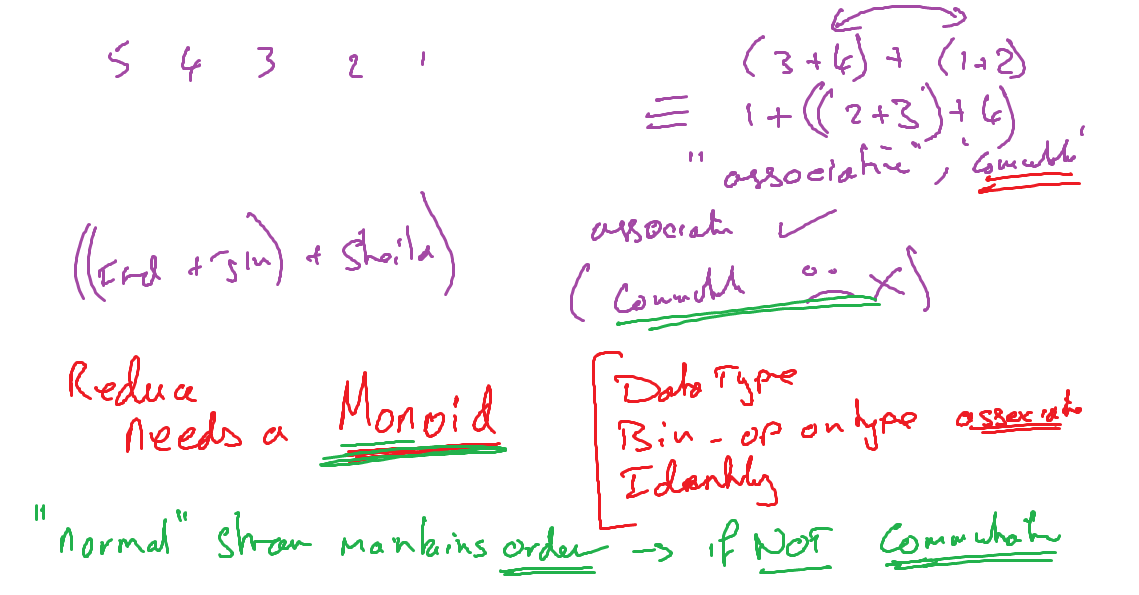 5 4 3 2 1
(3+4) + (1+2)
≡ 1+((2+3)+4)
"associative", 
((Fred + Jim) + Sheila)
associative ✓
(Commutative X)
Reduce
needs a Monoid
Data Type
Bin-op on type associative
Identity
"normal" stream maintains order → if NOT Commutative